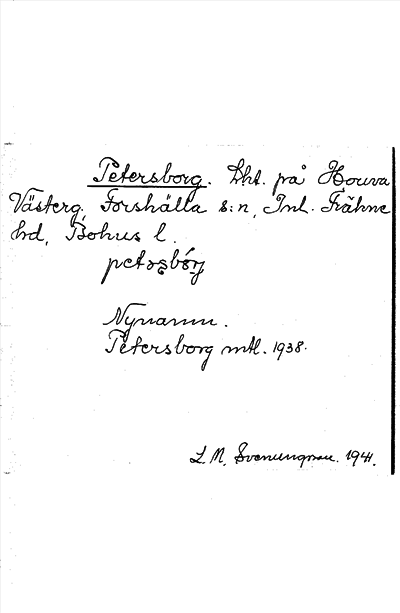 Petersborg. Lht. på Houva
Västerg, Forshälla s:n, Inl. Fräkne
hd, Bohus l.
Nynamn.
Petersborg mtl. 1938.
L. M. Svenungsson. 1941.